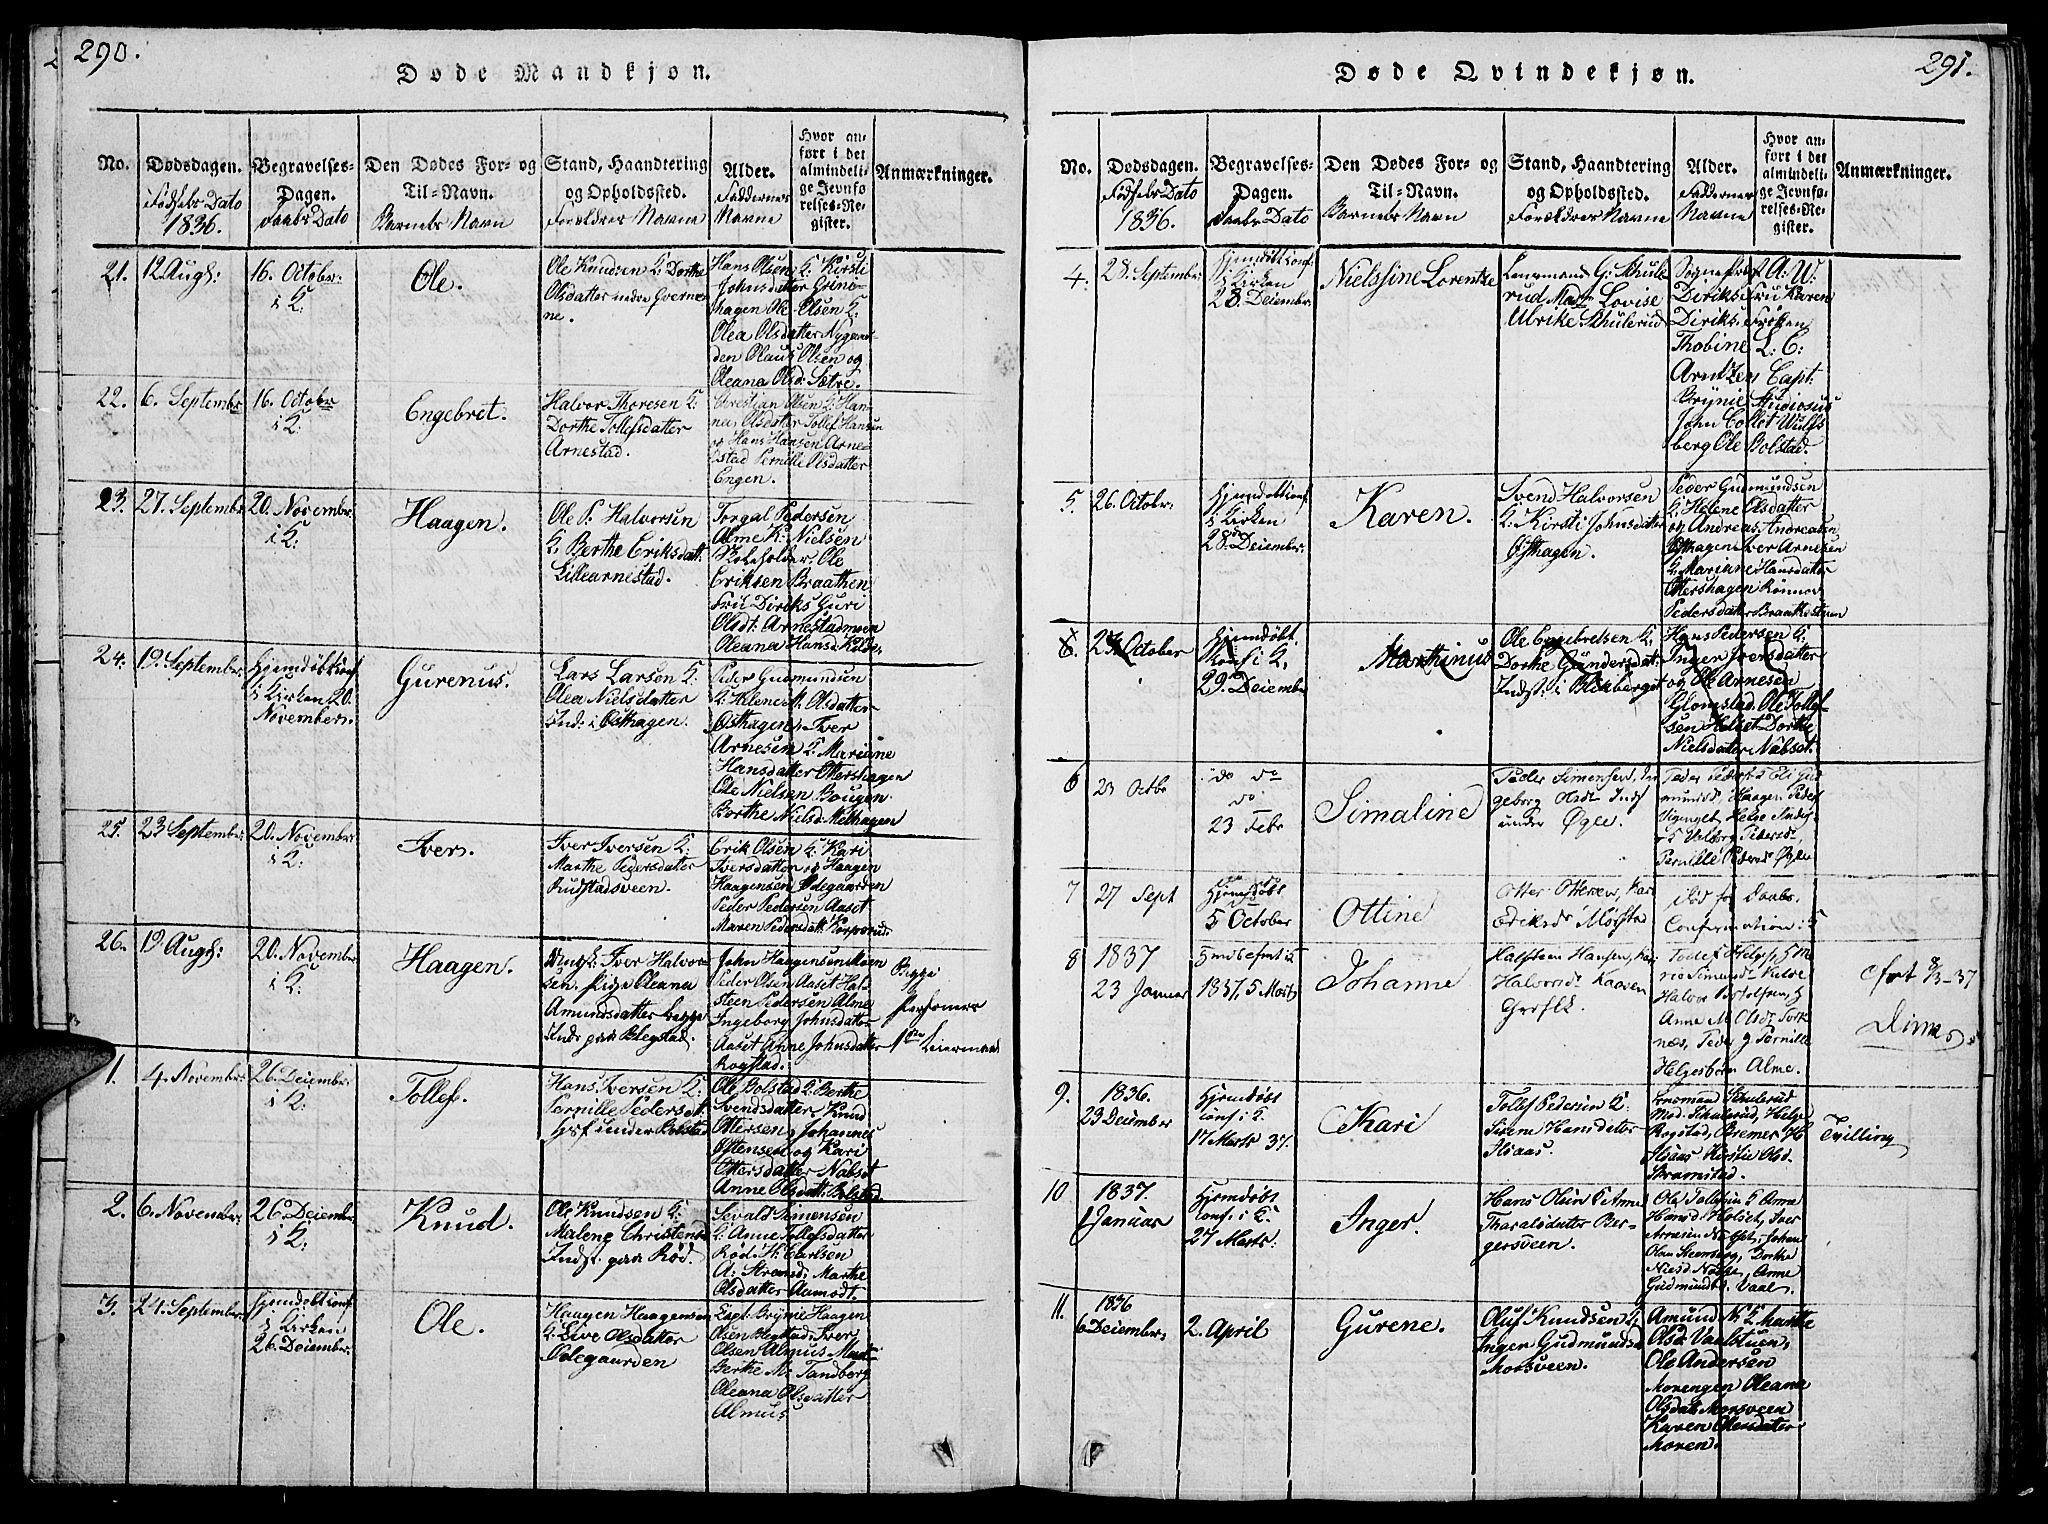 290.
Døde Mandkjøn.
No.
Dødsdagen.
Fødsels Dato
1836.
Begravelses-
Dagen.
Daabs Dato
Den Dødes For- og
Til-Navn.
Barnets Navn
Stand, Haandtering
og Opholdssted.
Forældres Navne
Alder.
Faddernes
Navne
Hvor an-
ført i det
almindeli-
ge Jevnfø-
relses-Re-
gister.
Anmærkninger.
21.
12 Augs:
16. Octobr:
i K:
Ole.
Ole Knudsen K: Dorthe
Olsdatter nedre Gverner
ne.
Hans Olsen K: Kirsti
Johnsdatter Grins-
hagen Ole Olsen K:
Olea Olsdatter Nygaar-
den Olaus Olsen og
Oleana Olsd: Sætre.
22.
6. Septembr
16. Octobr
i K:
Engebret.
Halvor Thoresen K:
Dorthe Tollefsdatter
Arnestad.
Christian Olsen K: Han-
na Olsdatter Tollef Hansen
og Hans Hansen Arne-
stad Pernille Olsdatter
Engen.
23.
27. Septembr
20. Novembr.
i K:
Haagen.
Ole P. Halvorsen
K. Berthe Eriksdatt:
Lillearnestad.
Torgal Pedersen
Alme K. Nielsen
Skoleholder Ole
Eriksen Braathen
Fru Diriks Guri
Olsdt: Arnestadmoen
Oleana Hansd.
24.
19. Septembr.
Hjemdøbt Conf
i Kirken 20.
Novembers.
Gurenus.
Lars Larsen K:
Olea Nielsdatter
Inds: i Østhagen.
Peder Gudmundsen
K: Helene Olsdatter
Østhagen Iver
Arnesen K: Mariane
Hansdatter Ottershagen
Ole Nielsen Bougen
Berthe Nielsd. Melhagen
25.
23 Septembr:
20. Novembr
i K:
Iver.
Iver Iversen K:
Marthe Pedersdatter
Rudstadsveen.
Erik Olsen K: Kari
Iversdatter og Haagen
Haagensen Ødegaarden
Peder Pedersen Aaset
Maren Pedersdatt: Korporud.
26.
19. Augs:
20. November
i K:
Haagen.
Ungk: Iver Halvor-
sen. Pige Oleana
Amundsdatter begge
Inds: paa Blegstad.
John Haagensen Moen
Peder Olsen Aaset Hal-
steen Pedersen Alme
Ingeborg Johnsdatter
Aaset Anne Johnsdatter
Rogstad.
Begge
Personers
1ste Leiermaal
1.
4. Novembr:
26. Decembr:
i K:
Tollef.
Hans Iversen K:
Pernille Pedersdt:
Hsf under Bolstad
Ole Bolstad K: Berthe
Svendsdatter Knud
Ottersen, Johannes
Ostensen og Kari
Ottersdatter Nabset
Anne Olsdatt: Bolstad.
2.
6. Novembr:
26. Decembr.
i K:
Knud.
Ole Knudsen K:
Malene Christensd
Indst. paa Rød.
Sevald Simensen
K: Anne Tollefsdatter
Rød. H: Carlsen
A: Strand: Marthe
Olsdatter Aamodt.
3.
24. Septembr
Hjemdøbt conf
i Kirken
26. Decembr:
Ole.
Haagen Haagensen
K: Live Olsdatter
Ødegaarden
Capt: Brynie Haagen
Olsen Blegstad, Iver
Olsen Almus Mad:
Berthe M: Tandberg
Oleana Olsdatter
Almus
291.
Døde Qvindekjøn.
No.
Dødsdagen.
Fødsels Dato
1836.
Begravelses-
Dagen.
Daabs Dato
Den Dødes For- og
Til-Navn.
Barnets Navn
Stand, Haandtering
og Opholdssted.
Forældres Navne
Alder.
Faddernes
Navne
Hvor an-
ført i det
almindeli-
ge Jevnfø-
relses-Re-
gister.
Anmærkninger.
4.
28. Septembr:
Hjemdøbt conf.
i Kirken
28. Decembr.
Nielssine Lorentze
Lensmand G: Schüle
rud Mad: Lovise
Ulrike Schülerud
Sogneprest A: W:
Diriks: Fru Karen
Diriks. Frøken
Thobine L: C:
Arntzen Capt:
Brynie Studiosus
John Collet Wulfs
berg Ole Bolstad.
5.
26. Octobr:
Hjemdøbt conf.
i Kirken
28. Decembr:
Karen.
Svend Halvorsen
K: Kirsti Johnsdatter
Østhagen.
Peder Gudmundsen
K: Helene Olsdatter
og Andreas Andreasen
Østhagen Iver Arnesen
K: Mariane Hansdatter
Ottershagen Rønnou
Pedersdatter Braatkestuen
6.
27. October
Hjemdøbt
Conf i K.
29. Decembr
Marthinus
Ole Engebretsen K:
Dorthe Gundersdat:
Indst: i Blikberget
Hans Pedersen K:
Inger Iversdatter
og Ole Arnesen
Glomstad. Ole Tollef-
sen Holset Dorthe
Nielsdatter Nabset.
6
23 Octbr
do do
do
23 Febr
Simaline
Peder Simensen, In
geborg Olsdt Indst
under Øgle.
Peder Pedersd Eli Gud
mundsd. Haagen Peders
Signe Helge Inds
K Valborg Pedersdt
Pernille Pedersd Øgle
7
27 Sept
Hjemdøbt
5 October
Ottine
Otter Ottersen, Kari
Eriksd: Mostue
Død før Daabs-
Confirmation: 5
8
1837
23 Januar
1837, 5 Marts
Johanne
Halsteen Hansen, Kari
Halvorsd: Kaaven
Tollef Helges K Ma
rie Simensd
Halvor
Anne M. Olsdt Tork
næs, Peder og Pernille
Helgesbørn Alme.
8/3-37
9.
1836.
23 December
Hjemdøbt
conf. i K.
17 Marts 37.
Kari
Tollef Pedersen K:
Sirene Hansdatter
Ilsaas.
Lensmand Schülerud
Mad: Schulerud, Helge
Rogstad, Bremer
Ilsaas Kirstie Olsd.
Bramstad.
Tvilling
10
1837.
1 Januar
Hjemdøbt
conf. i K.
27 Marts.
Inger.
Hans Olsen K Anne
Tharaldsdatter Ber-
gersveen.
Ole Tollefsen K Anne
Hansd Holset, Iver
Arnesen
Olsen Steenberg, Dorthe
Nielsd Nabset, Anne
Gudmundsd. Vaal.
11.
1836
6 December
2. April
Gurene.
Oluf Knudsen K.
Inger Gudmundsd.
Morsveen.
Amund N. K. Marthe
Olsd: Vaalstuen,
Ole Andersen
Morengen Oleana
Olsdatt Morsveen
Karen Olesdatter
Moren.